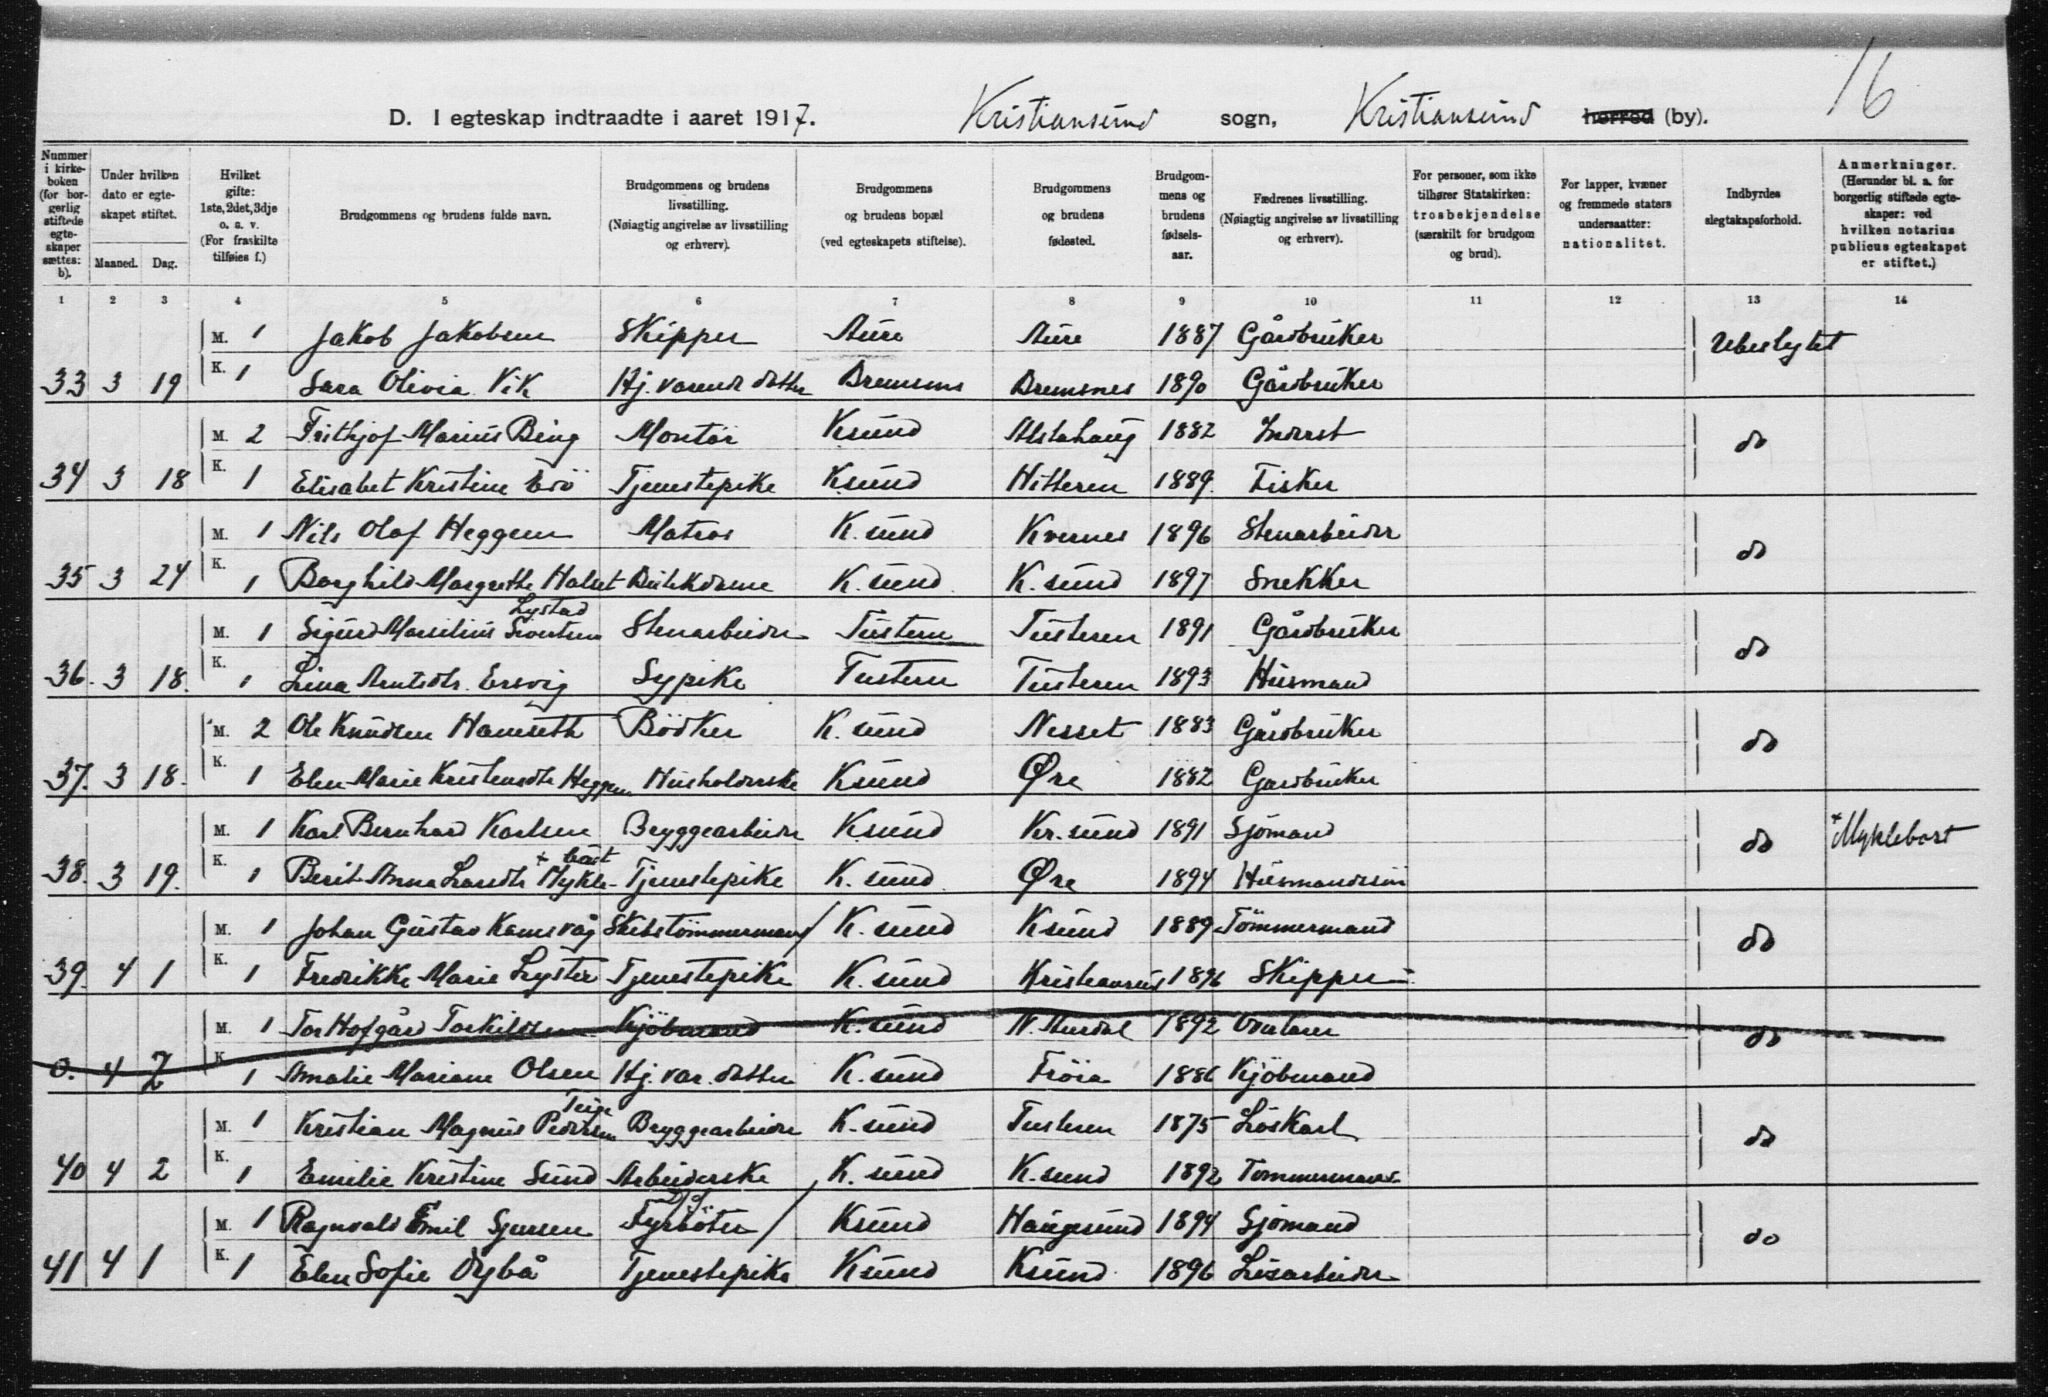 16
D. I egteskap indtraadte i aaret 1917. Kristiansund sogn, Kristiansund herred (by).
Nummer i kirke-boken (for bor-gerlig stiftede egte-skaper sættes: b).
Under hvilken dato er egte-skapet stiftet.
Maaned. Dag.
Hvilket gifte: 1ste, 2det, 3dje o. s. v. (For fraskilte tilføies f.)
Brudgommens og brudens fulde navn.
Brudgommens og brudens livsstilling. (Nøiagtig angivelse av livsstilling og erhverv).
Brudgommens og brudens bopæl (ved egteskapets stiftelse).
Brudgommens og brudens fødested.
Brudgom-mens og brudens fødsels-aar.
Fædrenes livsstilling. (Nøiagtig angivelse av livsstilling og erhverv).
For personer, som ikke tilhører Statskirken: trosbekjendelse (særskilt for brudgom og brud).
For lapper, kvæner og fremmede staters undersaatter: nationalitet.
Indbyrdes slegtskapsforhold.
Anmerkninger. (Herunder bl. a. for borgerlig stiftede egte-skaper: ved hvilken notarius publicus egteskapet er stiftet.)
1 2 3 4 5 6 7 8 9 10 11 12 13 14
M. 1 Jakob Jakobsen Skipper Aure Aure 1887 Gårdbruker Ubeslegtet
33 3 19 K. 1 Sara Olivia Vik Hj. værende datter Bremsnes Bremsnes 1890 Gårdbruker
M. 2 Frithjof Marius Bing Montör Ksund Alstahaug 1882 do
34 3 18 K. 1 Elisabet Kristine Ersö Tjenestepike Ksund Hitteren 1889. Fisker
M. 1 Nils Olaf Heggem Matros K. sund Kvernes 1896 Stenarbeider do
35 3 24 K. 1 Borghild Margrethe Halset Butikdame K. sund K. sund 1897 Snekker
Lystad
M. 1 Sigurd Marselius Sivertsen Stenarbeider Tusteren Tusteren 1891 Gårdbruker do
36. 3 18. K. 1 Lina Arntsdtr. Ersvig Sypike Tusteren Tusteren 1893 Husmand
M. 2 Ole Knudsen Hanseth Bödker K. sund Nesset 1883 Gårdbruker do
37. 3 18. K. 1 Elen Marie Kristensdtr Heggem Husholderske Ksund Øre 1882 Gardbruker
M. 1 Karl Bernhard Karlsen Bryggearbeider Ksund Kr. sund 1891 Sjömand do + Myklebost
38. 3 19. K. 1 Berit Anna Larsdtr + Mykle-bost Tjenestepike K. sund Øre 1894 Husmandssön
M. 1 Johan Gustav Ramsvåg Skibstömmermand / K. sund Ksund 1889 Tömmermand do
39. 4 1 K. 1 Fredrikke Marie Lyster Tjenestepike K. sund Kristiansund 1896 Skipper
M. 1 Tor Hofgård Torkildsen Kjöbmand K. sund N. Aurdal 1892 do
0. 4 2 K. 1 Amalie Mariane Olsen Hj. vær. datter K. sund Fröia 1886 Kjöbmand
M. 1 Kristian Magnus Pedersen Bryggearbeider K. sund Tusteren 1875 Löskarl do
40 4 2 K. 1 Emilie Kristine Sund Arbeiderske K. sund K. sund 1892 Tömmermand
M. 1 Ragnvald Emil Syversen Fyrböter / Ksund Haugesund 1894 Sjömand do
41 4 1 K. 1 Elen Sofie Dybå Tjenestepike Ksund Ksund 1896 Lösarbeider